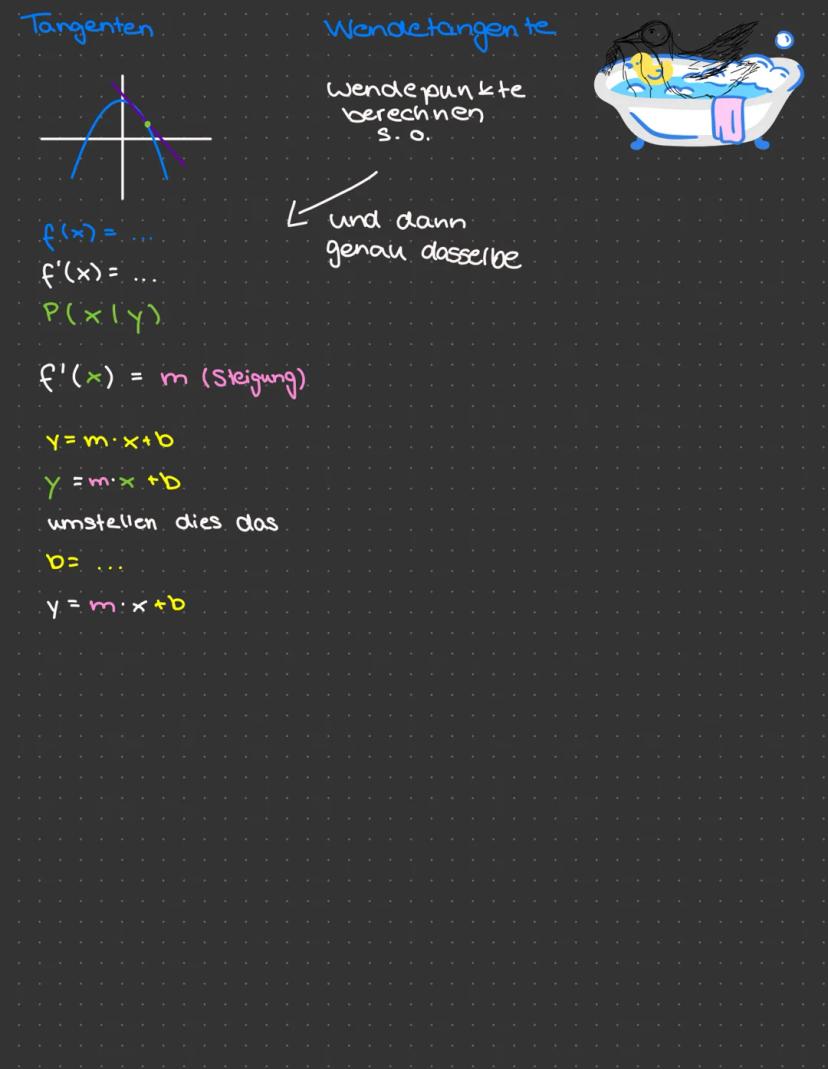 Tangenten
f(x) = ...
f'(x) = ...
P(x|y)
f'(x) = m (Steigung)
y = m · x + b
y = m · x + b
umstellen dies das
b = ...
y = m · x + b
Wendetangente
wendepunkte
berechnen
s. o.
und dann
genau dasselbe